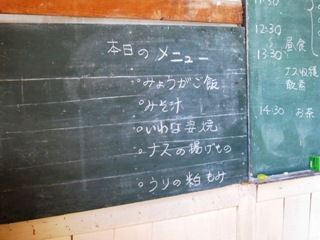 本日のメニュー
○みょうがご飯
○みそ汁
○いわな姿焼
○ナスの揚げもの
○うりの粕もみ
12:30
13:30
昼食
ナス収穫
散策
14:30 お茶